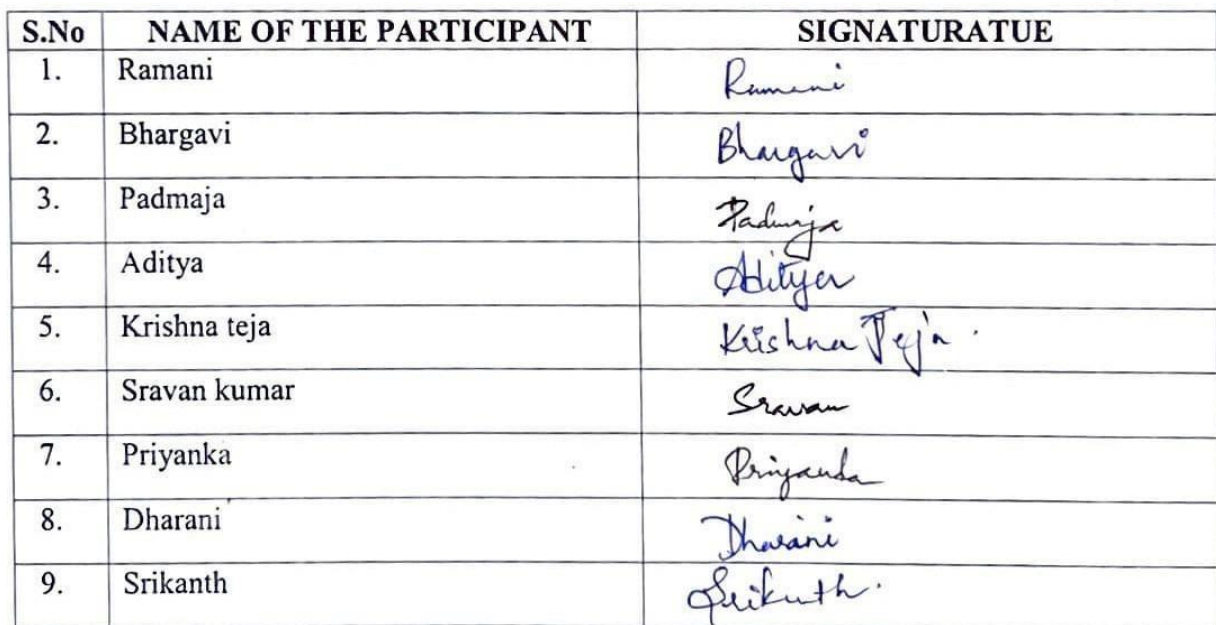 S.No NAME OF THE PARTICIPANT SIGNATURATUE
1. Ramani Ramani
2. Bhargavi Bhargavi
3. Padmaja Padmaja
4. Aditya Aditya
5. Krishna teja Krishna Teja.
6. Sravan kumar Sravan
7. Priyanka Priyanka
8. Dharani Dharani
9. Srikanth Srikanth.